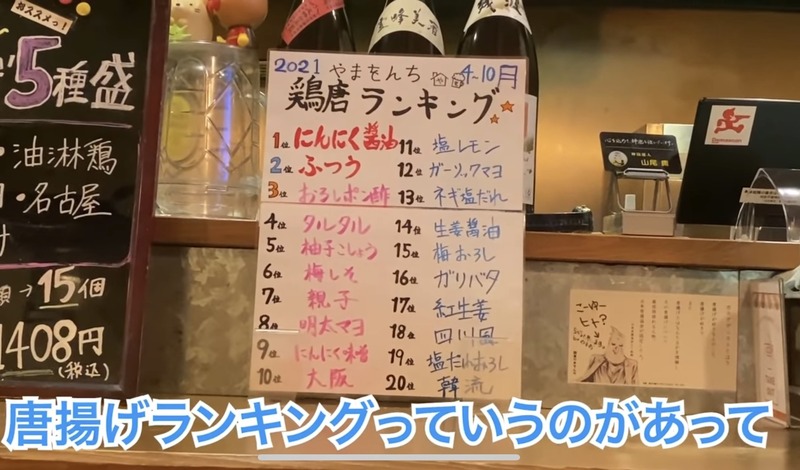 おススメっ!
5種盛
・油淋鶏
・名古屋
→15個
1408円
(税込)
2021 やまをんち 4-10月
鶏唐ランキング
1位 にんにく醤油
2位 ふつう
3位 おろしポン酢
4位 タルタル
5位 柚子こしょう
6位 梅しそ
7位 親子
8位 明太マヨ
9位 にんにく味噌
10位 大阪
11位 塩レモン
12位 ガーリックマヨ
13位 ネギ塩だれ
14位 生姜醤油
15位 梅おろし
16位 ガリバタ
17位 紅生姜
18位 四川風
19位 塩だれおろし
20位 韓流
こーゆー
ヒト?
唐揚げランキングっていうのがあって